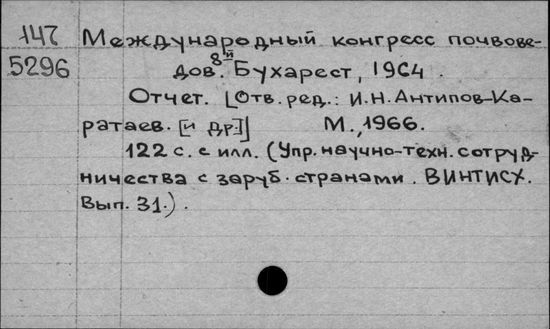 147 Международный конгресс почвове-
5296 дов. 8й Бухарест, 1964.
Отчет. [Отв. ред.: И.Н. Антипов-Ка-
ратаев. [и др.]] М., 1966.
122 с. с илл. (Упр. научно-техн. сотруд-
ничества с заруб. странами. ВИНТИСХ.
Вып. 31.).